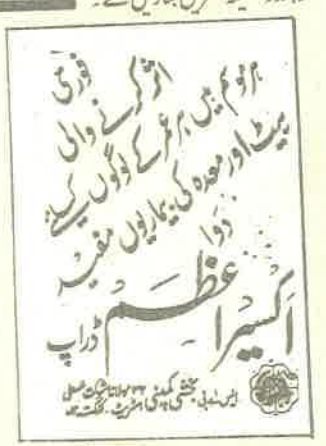 فوری
اثر کرنے والی
ہر موسم میں ہر عمر کے لوگوں کیلئے
پیٹ اور معدہ کی بیماریوں میں مفید
دوا
اکسیر اعظم ڈراپ
ایس اے بی بخشی کمپنی ۲۳ مولانا شوکت علی
اسٹریٹ۔ کلکتہ